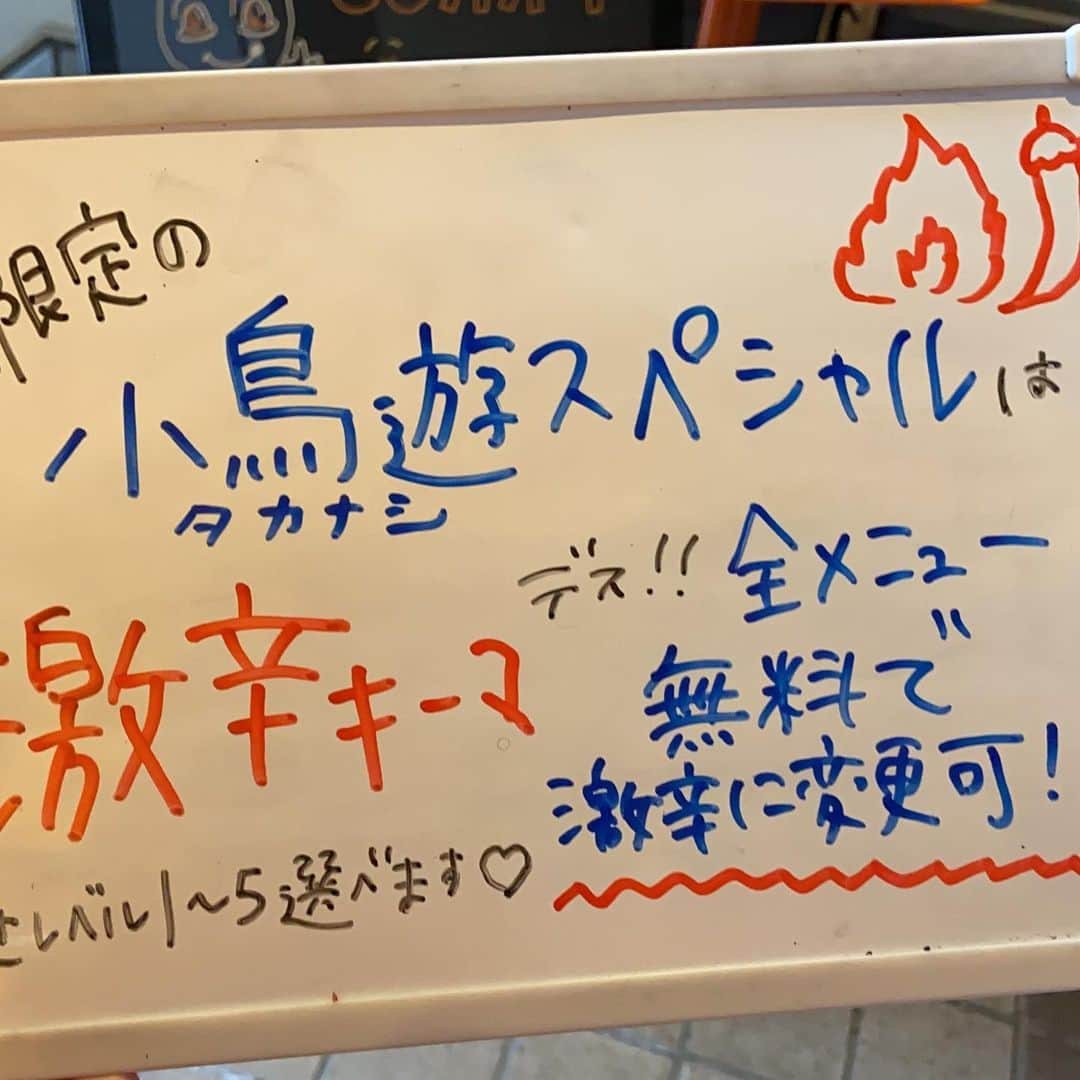 限定の
小鳥遊スペシャルは
タカナシ
激辛キーマ
デス!!
全メニュー
無料で
激辛に変更可!
レベル1~5選べます♡